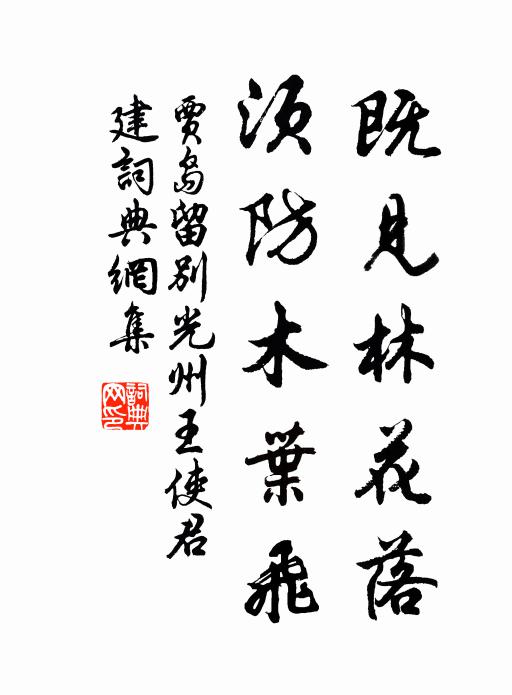 既見林花落
須防木葉飛
賈島留別光州王使君
建詞典網集
詞典网印